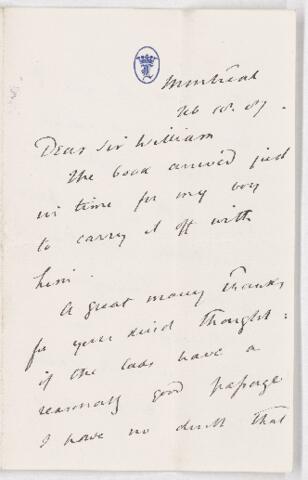 Montreal
Feb 18. 87.
Dear Sir William
The book arrived just
in time for my boy
to carry it off with
him.
A great many thanks
for your kind thought:
if the lads have a
reasonably good passage
I have no doubt that